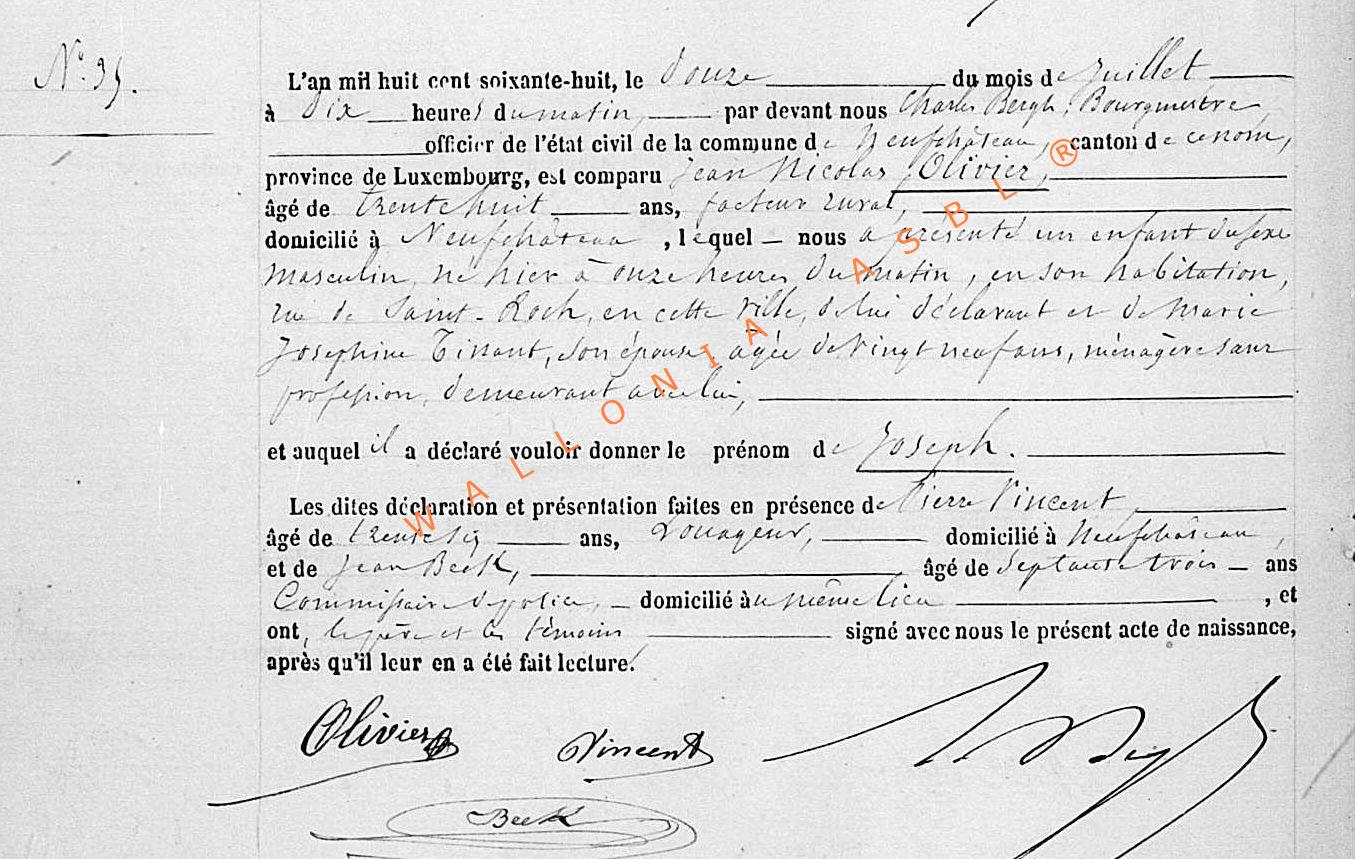 N° 35.
L'an mil huit cent soixante-huit, le douze du mois de Juillet
à dix heures du matin, par devant nous Charles Bergh, Bourgmestre
officier de l'état civil de la commune de Neufchâteau, canton de ce nom,
province de Luxembourg, est comparu Jean Nicolas Olivier,
âgé de trente huit ans, facteur rural,
domicilié à Neufchâteau, lequel nous a présenté un enfant du sexe
masculin, né hier à onze heures du matin, en son habitation,
rue de Saint-Roch, en cette ville, de lui déclarant et de Marie
Josephine Tinant, son épouse, âgée de vingt neuf ans, ménagère sans
profession, demeurant avec lui,
et auquel il a déclaré vouloir donner le prénom de Joseph.
Les dites déclaration et présentation faites en présence de Pierre Vincent,
âgé de trente six ans, domicilié à Neufchâteau,
et de Jean Beek, âgé de septante trois ans
Commissaire de police, domicilié au même lieu, et
ont, le père et les témoins signé avec nous le présent acte de naissance,
après qu'il leur en a été fait lecture.
Olivier Vincent
Beek
WALLONIA ASBL ®